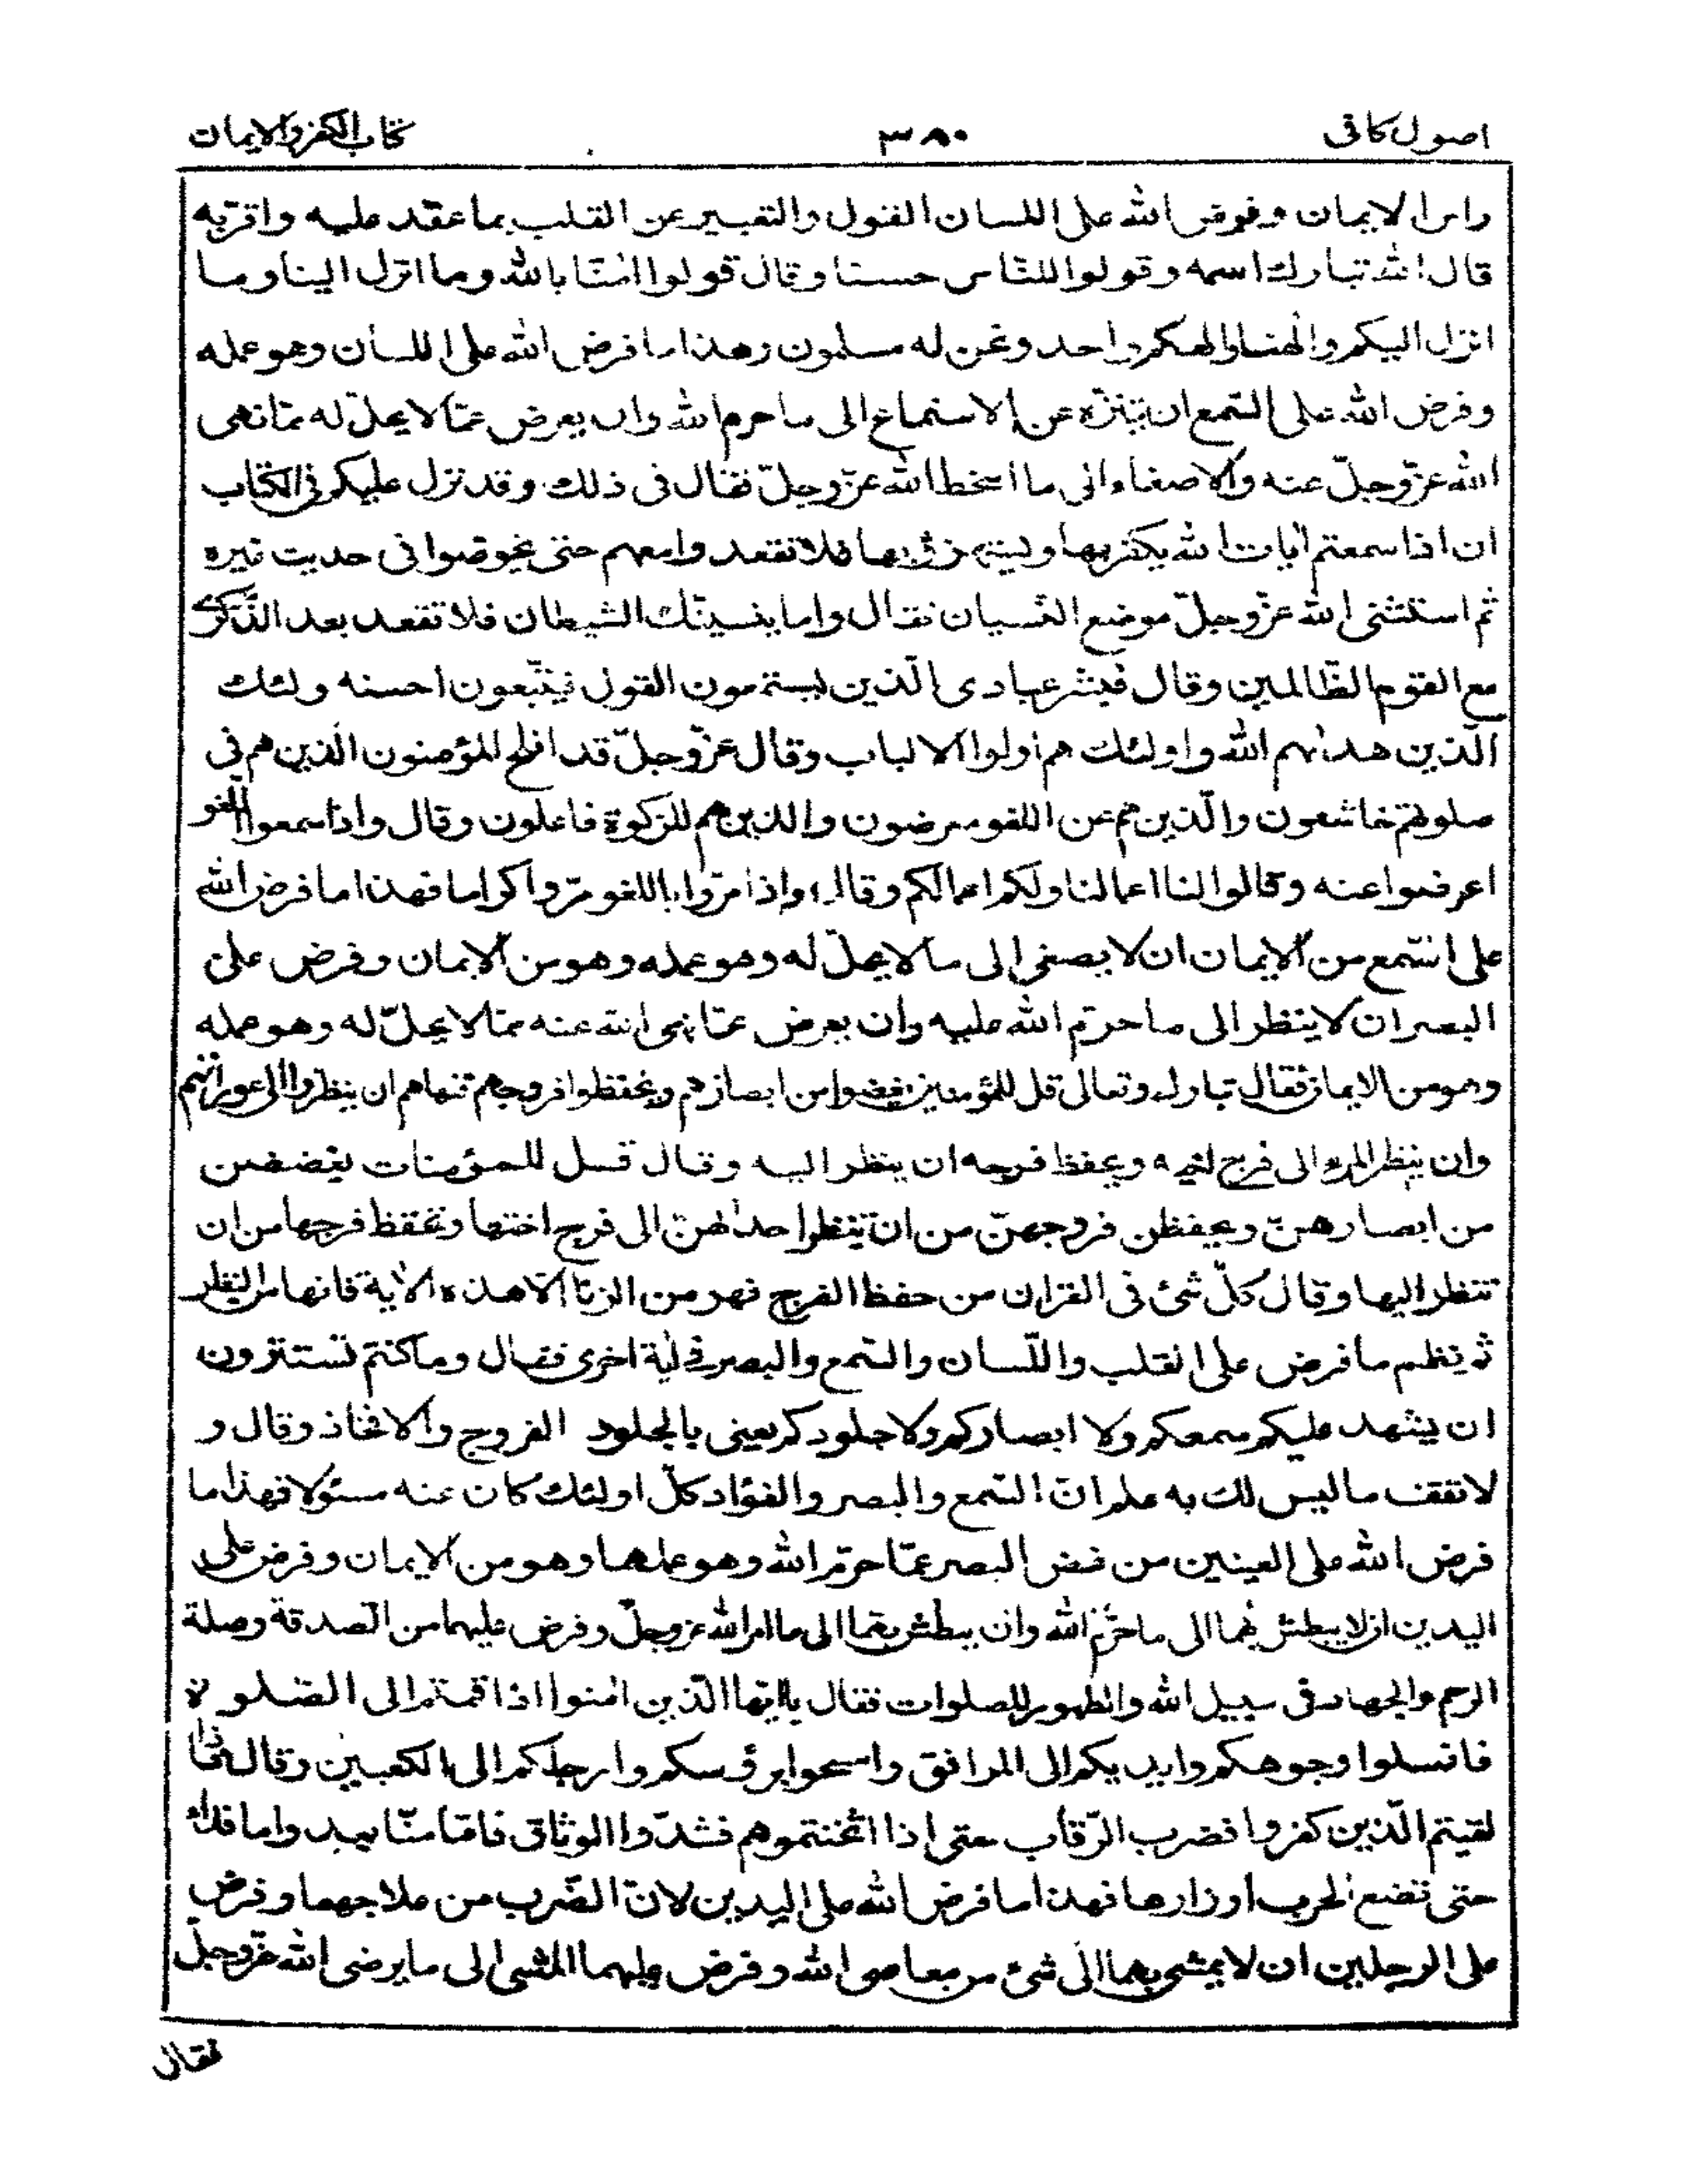 اصول كافى ٣٨٠ كتاب الكفر والايمان
راس الايمان وفرض الله على اللسان القول والتعبير عن القلب بما عقد عليه واقرّبه
قال الله تبارك اسمه وقولوا للنّاس حسنا وقال قولوا امنّا بالله وما انزل الينا وما
انزل اليكم والهنا والهكم واحد ونحن له مسلمون وهذا ما فرض الله على اللسان وهو عمله
وفرض الله على السّمع ان يتنزّه عن الاستماع الى ما حرم الله وان يعرض عمّا لا يحلّ له ممّا نهى
الله عزّ وجلّ عنه والاصغاء الى ما اسخط الله عزّ وجلّ فقال فى ذلك وقد نزل عليكم فى الكتاب
ان اذا سمعتم ايات الله يكفر بها ويستهزئ بها فلا تقعدوا معهم حتى يخوضوا فى حديث غيره
ثم استثنى الله عزّ وجلّ موضع النّسيان فقال واما ينسينّك الشيطان فلا تقعد بعد الذّكرى
مع القوم الظّالمين وقال فبشر عبادى الّذين يستمعون القول فيتّبعون احسنه اولئك
الّذين هداهم الله واولئك هم اولوا الالباب وقال عزّ وجلّ قد افلح المؤمنون الذين هم فى
صلوتهم خاشعون والّذين هم عن اللغو معرضون والذين هم للزكوة فاعلون وقال واذا سمعوا اللغو
اعرضوا عنه وقالوا لنا اعمالنا ولكم اعمالكم وقال واذا مرّوا باللغو مرّوا كراما فهذا ما فرض الله
على السّمع من الايمان ان لا يصغى الى ما لا يحلّ له وهو عمله وهو من الايمان وفرض على
البصر ان لا ينظر الى ما حرّم الله عليه وان يعرض عمّا نهى الله عنه ممّا لا يحلّ له وهو عمله
وهو من الايمان فقال تبارك وتعالى قل للمؤمنين يغضوا من ابصارهم ويحفظوا فروجهم فنهاهم ان ينظروا الى عوراتهم
وان ينظر المرء الى فرج اخيه ويحفظ فرجه ان ينظر اليه وقال قل للمؤمنات يغضضن
من ابصارهنّ ويحفظن فروجهنّ من ان تنظر احداهنّ الى فرج اختها وتحفظ فرجها من ان
تنظر اليها وقال كلّ شئ فى القران من حفظ الفرج فهو من الزنا الا هذه الاية فانها من النظر
ثم نظم ما فرض على القلب واللّسان والسّمع والبصر فى اية اخرى فقال وما كنتم تستترون
ان يشهد عليكم سمعكم ولا ابصاركم ولا جلودكم يعنى بالجلود الفروج والافخاذ وقال و
لا تقف ما ليس لك به علم انّ السّمع والبصر والفؤاد كلّ اولئك كان عنه مسئولا فهذا ما
فرض الله على العينين من غض البصر عمّا حرّم الله وهو عملهما وهو من الايمان وفرض على
اليدين ان لا يبطش بهما الى ما حرّم الله وان يبطش بهما الى ما امر الله عز وجلّ وفرض عليهما من الصدقة وصلة
الرحم والجهاد فى سبيل الله والطهور للصلوات فقال ياايّها الّذين امنوا اذا قمتم الى الصّلوة
فاغسلوا وجوهكم وايديكم الى المرافق وامسحوا برؤسكم وارجلكم الى الكعبين وقال فاذا
لقيتم الّذين كفروا فضرب الرّقاب حتى اذا اثخنتموهم فشدّوا الوثاق فامّا منّا بعد واما فداء
حتى تضع الحرب اوزارها فهذا ما فرض الله على اليدين لانّ الضّرب من علاجهما وفرض
على الرجلين ان لا يمشى بهما الى شئ من معاصى الله وفرض عليهما المشى الى ما يرضى الله عزّ وجلّ
فقال